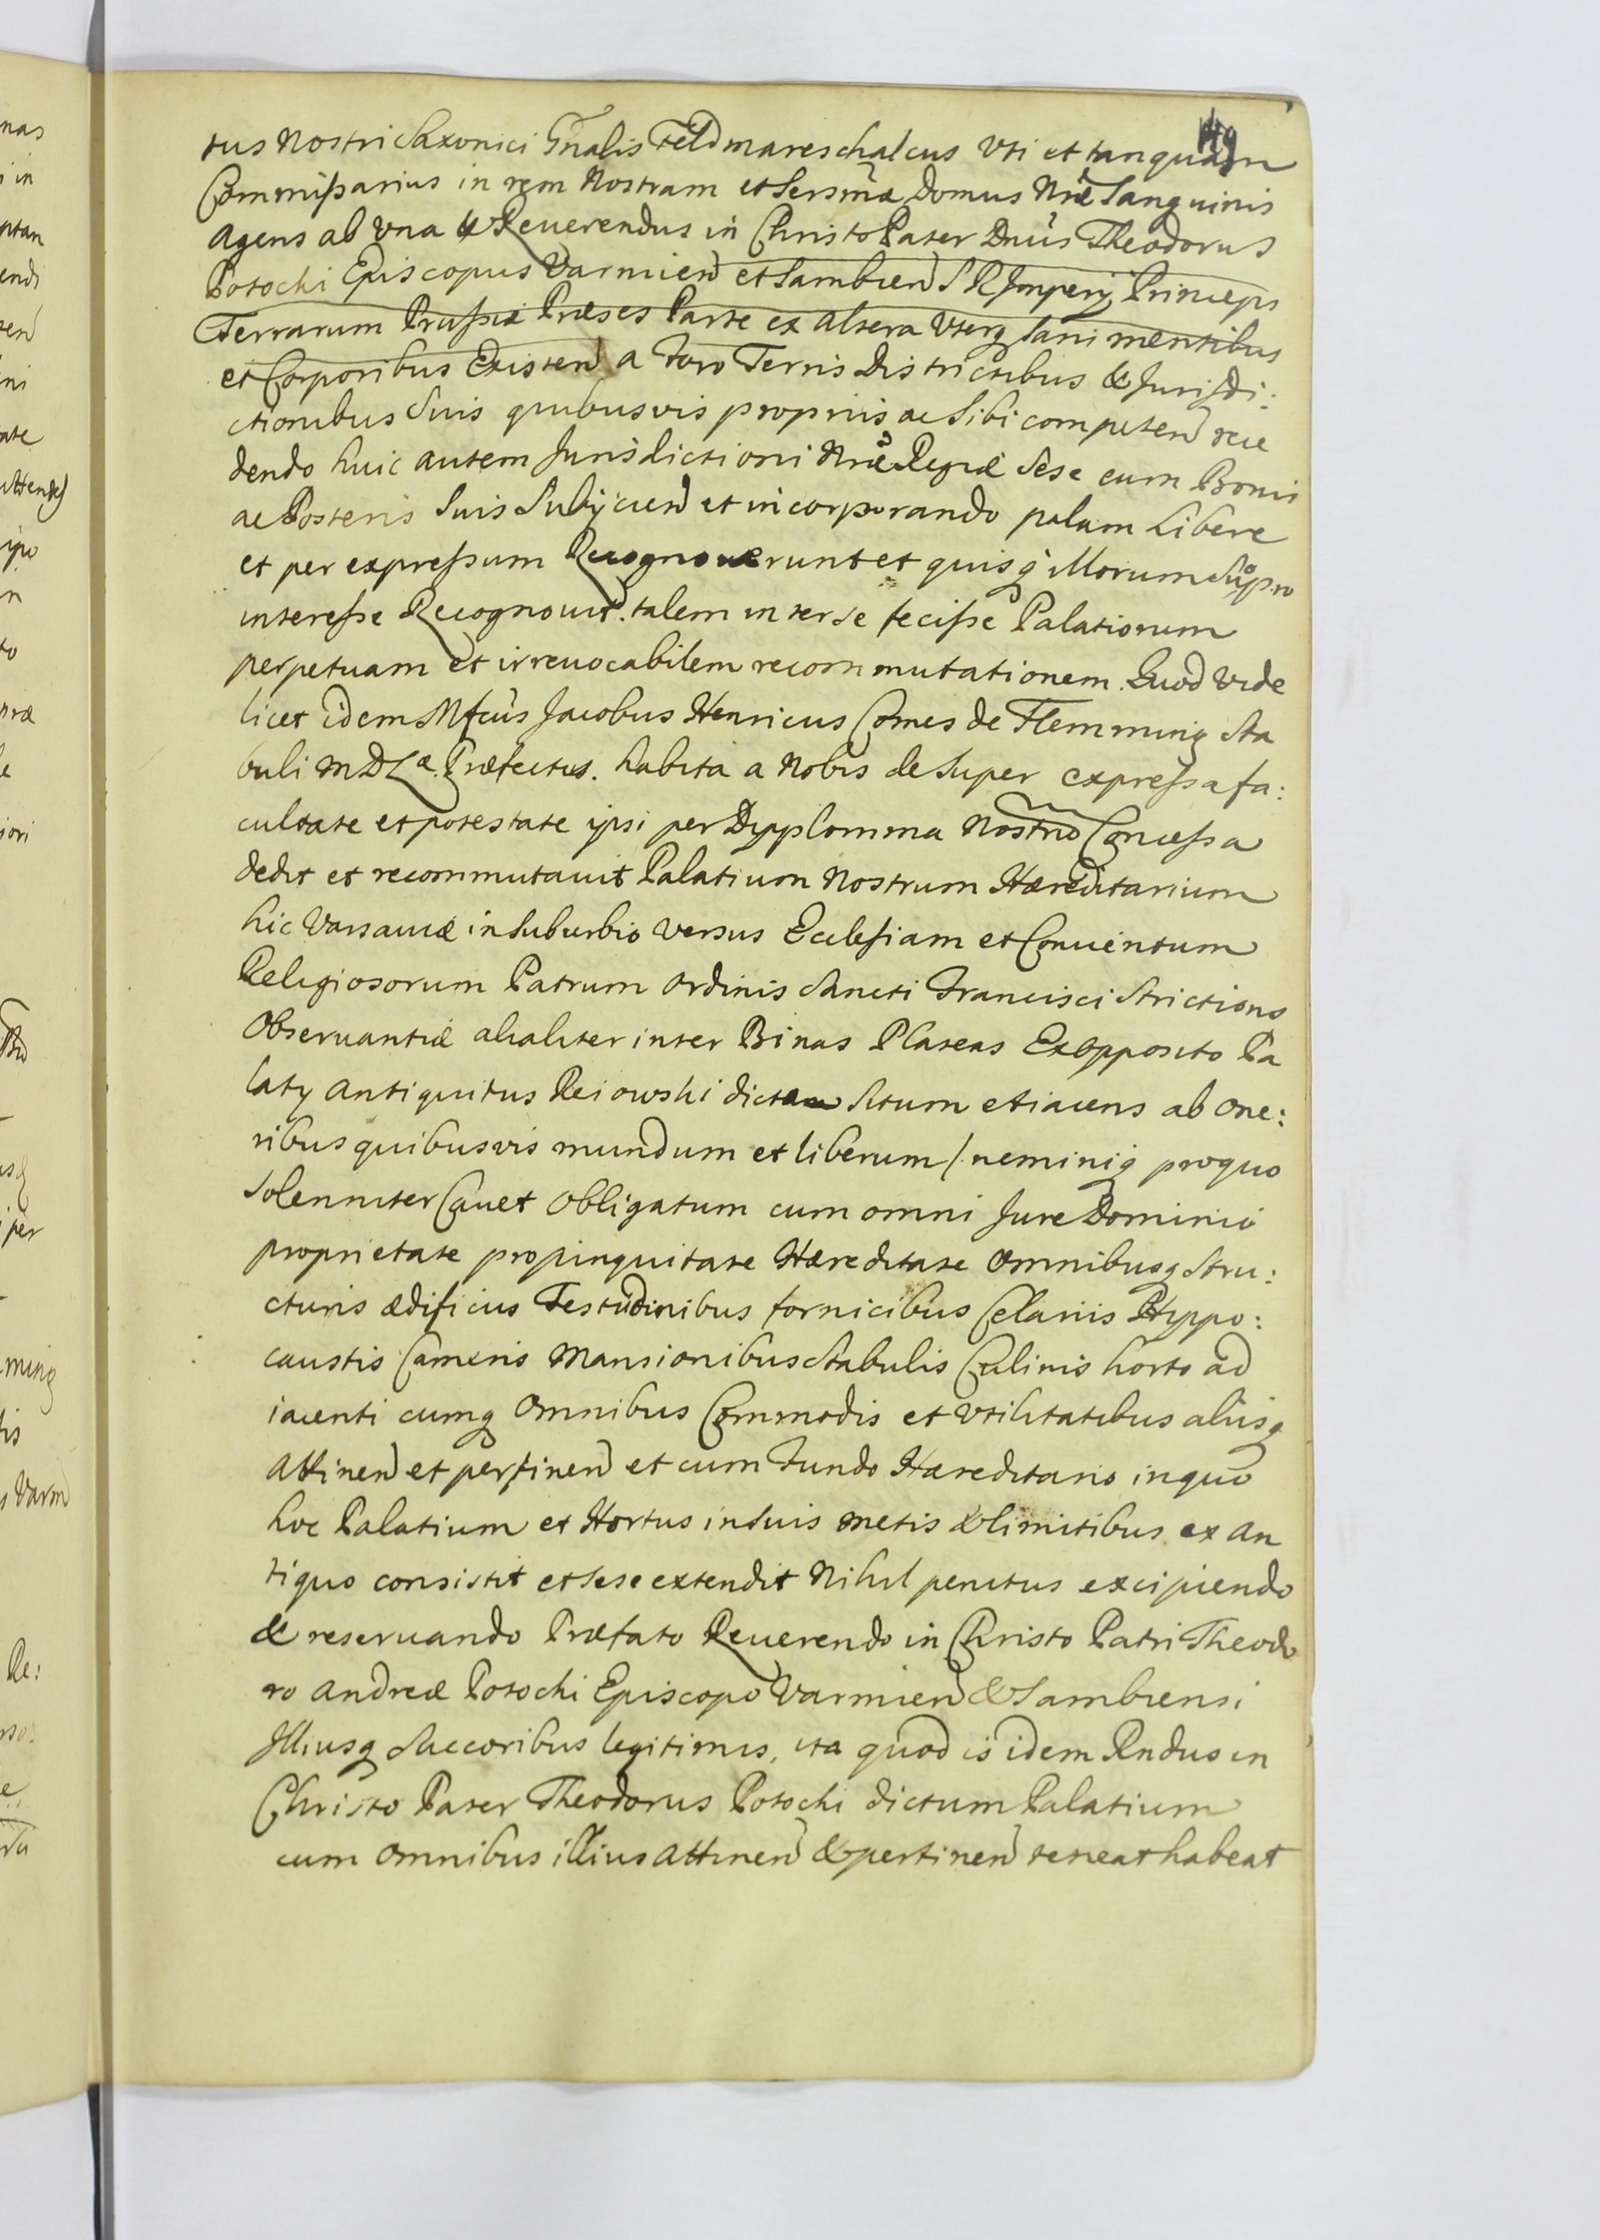 tus Nostri Saxonici Gnalis Feldmareschalcus Vti et tanquam
Commissarius in rem Nostram et Sersmæ Domus Nræ Sanguinis
Agens ab Vna & Reuerendus in Christo Pater Dnus Theodorus
Potocki Episcopus Varmien et Sambien S R Imperij Princeps
Terrarum Prussiæ Præses Parte ex altera Vterq sani mentibus
et Corporibus Existen a Foro Terris Districtibus & Jurisdi:
ctionibus Suis quibusvis proprijs ac Sibi competen rece
dendo huic autem Jurisdictioni Nræ Regiæ Sese cum Bonis
ac Posteris Suis Subijcien et incorporando palam Libere
et per expressum Recognouerunt et quisq illorum Suo pro
interesse Recognouit. talem inter se fecisse Palatiorum
perpetuam et irreuocabilem recommutationem. Quod Vide
licet idem Mfcus Jacobus Henricus Comes de Flemming Sta
buli M D L æ. Præfectus. habita a Nobis desuper expressa fa:
cultate et potestate ipsi per Dypplomma Nostrũ Concessa
dedit et recommutauit Palatium Nostrum Hæreditarium
hic Varsauiæ in Suburbio versus Ecclesiam et Conuentum
Religiosorum Patrum Ordinis Sancti Francisci Strictioris
Obseruantiæ alialiter inter Binas Plateas Ex opposito Pa
latij Antiquitus Reiowski dictam Situm et iacens ab One:
ribus quibusvis mundum et liberum /. neminiq proquo
Solenniter Cauet Obligatum cum omni Jure Dominio
proprietate propinquitate Hæreditate Omnibusq Stru:
cturis ædificijs Testudinibus fornicibus Celarijs Hyppo:
caustis Cameris Mansionibus Stabulis Culinis horto ad
iacenti cumq Omnibus Commodis et Vtilitatibus alijsq
Attinen et pertinen et cum Fundo Hæreditario in quo
hoc Palatium et Hortus in Suis metis & limitibus ex An
tiquo consistit et sese extendit Nihil penitus excipiendo
& reseruando Præfato Reuerendo in Christo Patri Theodo
ro Andreæ Potocki Episcopo Varmien & Sambiensi
Illiusq Succoribus legitimis, ita quod is idem Rndus in
Christo Pater Theodorus Potocki dictum Palatium
cum Omnibus illius Attinen & pertinen teneat habeat